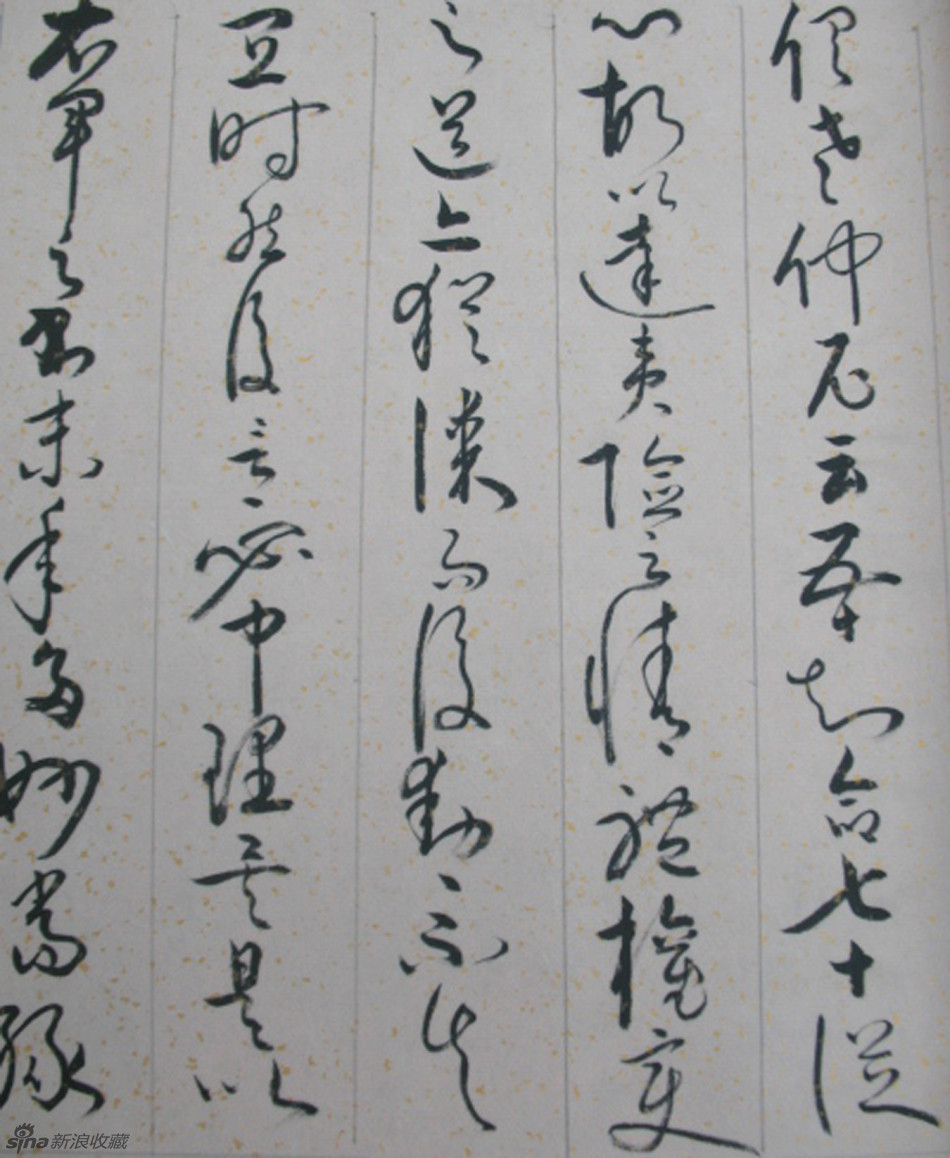 俱老仲尼云五十知命七十從
心故以達夷險之情體權變
之道亦猶謀而後動々不失
宜時然後言々必中理矣是以
右軍之書末年多妙當緣
sina新浪收藏